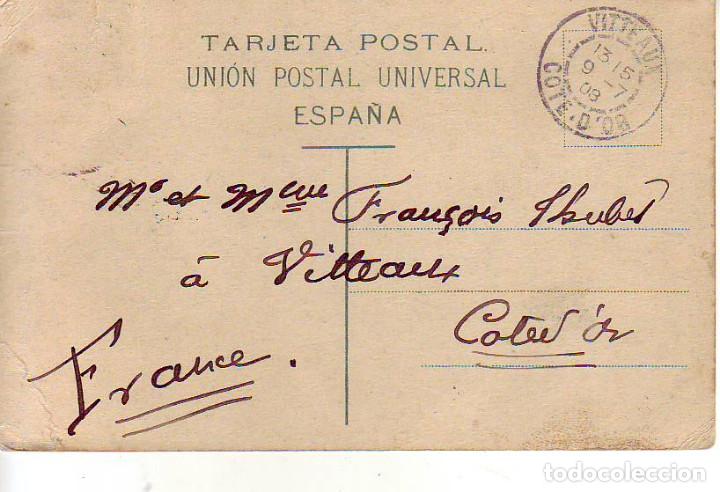 TARJETA POSTAL.
UNIÓN POSTAL UNIVERSAL
ESPAÑA
VITTEAUX
13 15
9 -7
08
COTE-D'OR
Mr et Mme François
à Vitteaux
Cote d'or
France.
todocoleccion